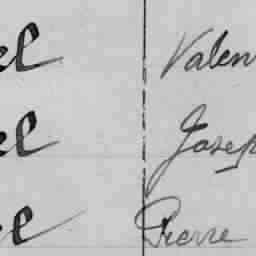 el Valen
el Josep
el Pierre